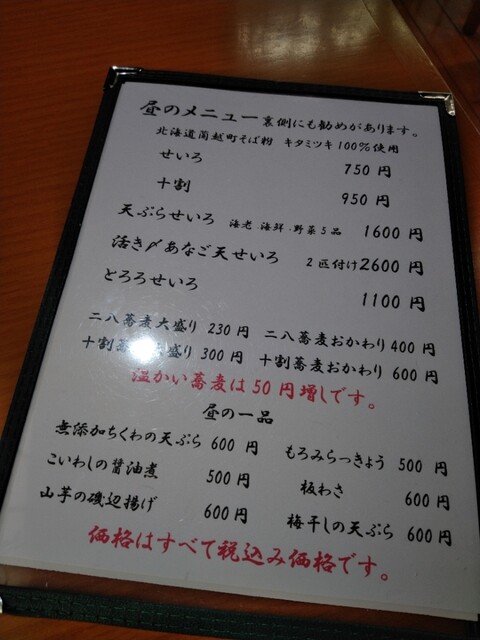 昼のメニュー 裏側にも勧めがあります。
北海道蘭越町そば粉 キタミツキ100%使用
せいろ 750円
十割 950円
天ぷらせいろ 海老 海鮮・野菜5品 1600円
活き〆あなご天せいろ 2匹付け2600円
とろろせいろ 1100円
二八蕎麦大盛り 230円 二八蕎麦おかわり400円
十割蕎 大盛り 300円 十割蕎麦おかわり 600円
温かい蕎麦は50円増しです。
昼の一品
無添加ちくわの天ぷら 600円 もろみらっきょう 500円
こいわしの醤油煮 500円 板わさ 600円
山芋の磯辺揚げ 600円 梅干しの天ぷら 600円
価格はすべて税込み価格です。